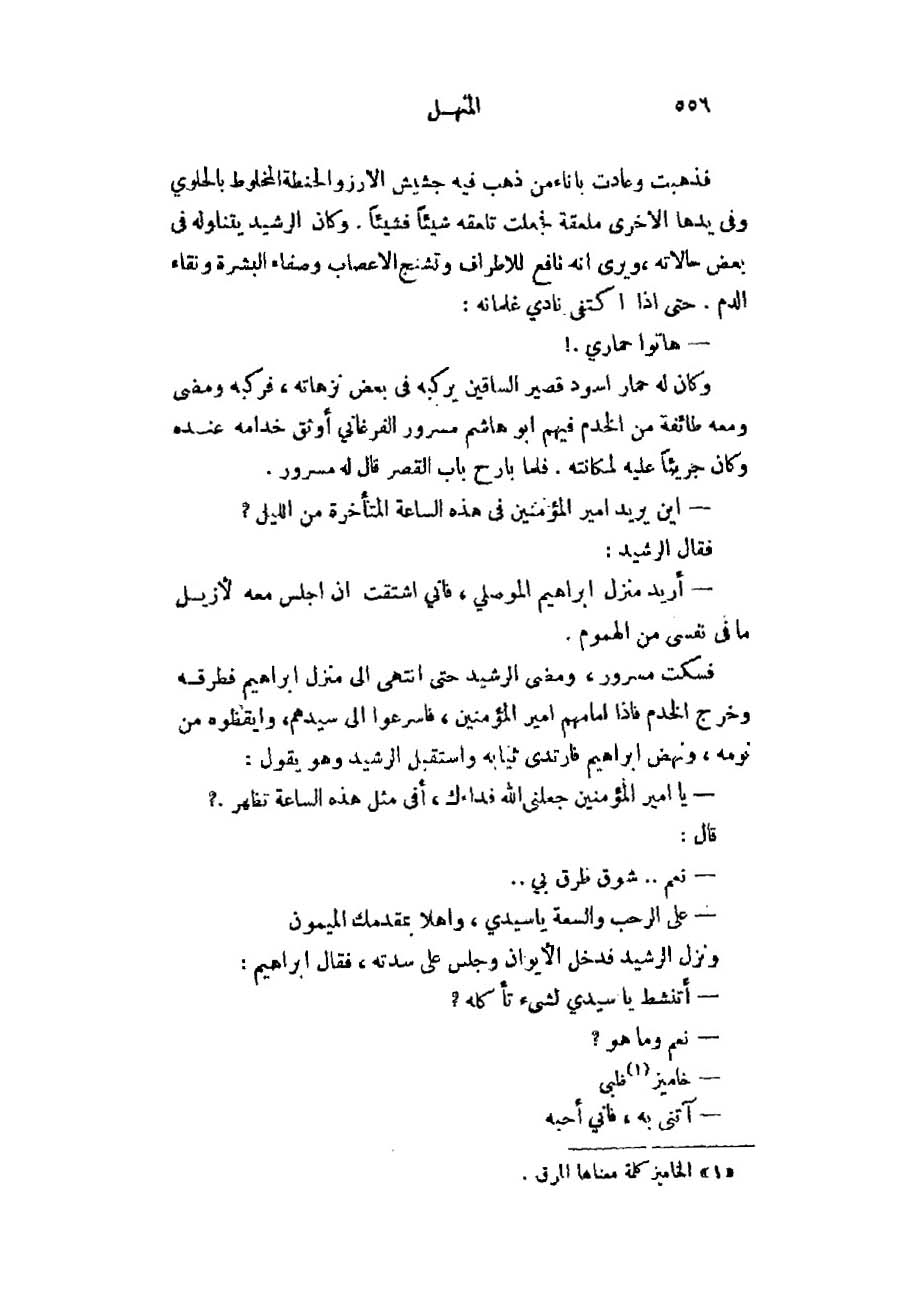 ٥٥٦ المنهل
فذهبت وعادت باناء من ذهب فيه جشيش الارز والحنطة المخلوط بالحلوي
وفى يدها الاخرى ملعقة فجعلت تلعقه شيئاً فشيئاً . وكان الرشيد يتناوله فى
بعض حالاته ، ويرى انه نافع للاطراف وتشنج الاعصاب وصفاء البشرة ونقاء
الدم . حتى اذا اكتفى نادي غلمانه :
— هاتوا حماري .!
وكان له حمار اسود قصير الساقين يركبه فى بعض نزهاته ، فركبه ومضى
ومعه طائفة من الخدم فيهم ابو هاشم مسرور الفرغاني أوثق خدامه عنده
وكان جريئاً عليه لمكانته . فلما بارح باب القصر قال له مسرور .
— اين يريد امير المؤمنين فى هذه الساعة المتأخرة من الليل ?
فقال الرشيد :
— أريد منزل ابراهيم الموصلي ، فأني اشتقت ان اجلس معه لأزيل
ما فى نفسى من الهموم .
فسكت مسرور ، ومضى الرشيد حتى انتهى الى منزل ابراهيم فطرقه
وخرج الخدم فاذا امامهم امير المؤمنين ، فاسرعوا الى سيدهم، وايقظوه من
نومه ، ونهض ابراهيم فارتدى ثيابه واستقبل الرشيد وهو يقول :
— يا امير المؤمنين جعلنى الله فداءك ، أفى مثل هذه الساعة تظهر .?
قال :
— نعم .. شوق طرق بي ..
— على الرحب والسعة ياسيدي ، واهلا بمقدمك الميمون
ونزل الرشيد فدخل الأيوان وجلس على سدته ، فقال ابراهيم :
— أتنشط يا سيدي لشىء تأكله ?
— نعم وما هو ?
— خاميز (١) ظبى
— آتنى به ، فأني أحبه
«١» الخاميز كلمة معناها المرق .